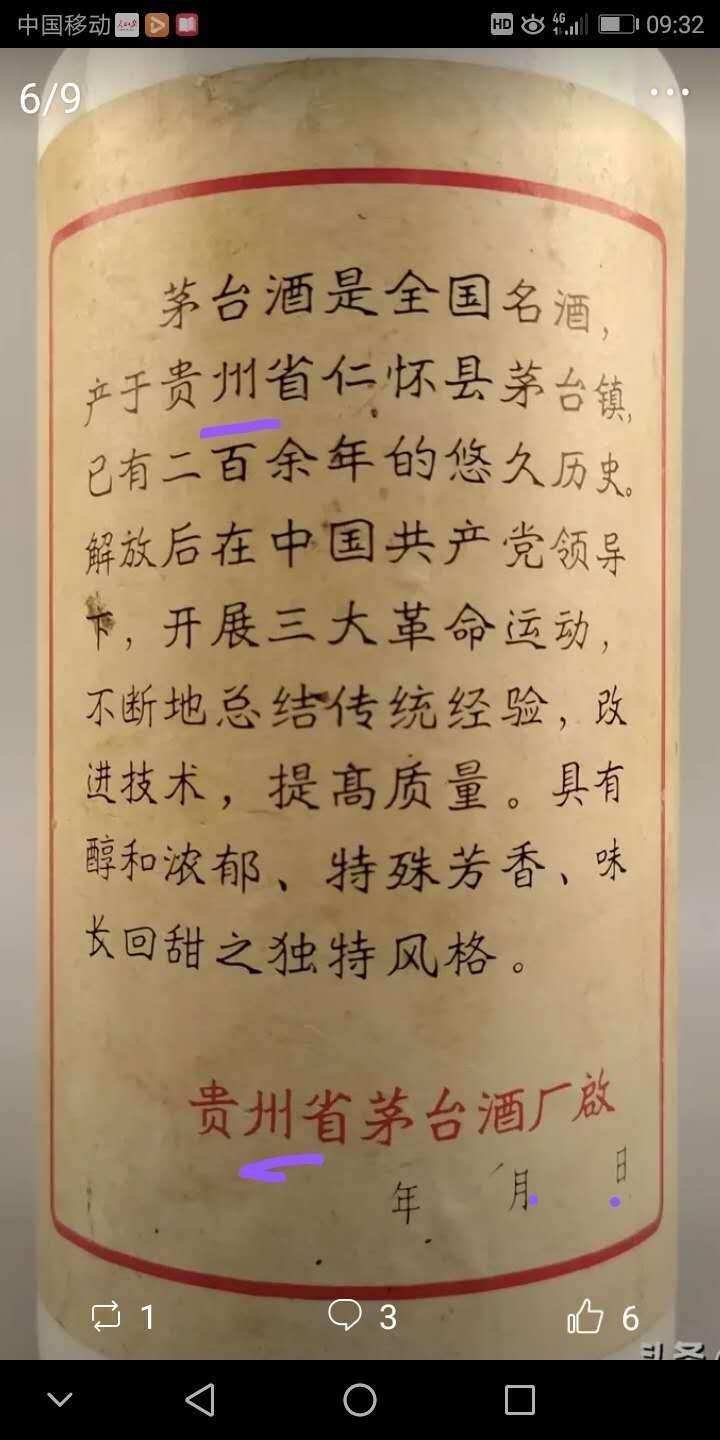 中国移动 HD 4G 09:32
6/9
茅台酒是全国名酒，
产于贵州省仁怀县茅台镇，
已有二百余年的悠久历史。
解放后在中国共产党领导
下，开展三大革命运动，
不断地总结传统经验，改
进技术，提高质量。具有
醇和浓郁、特殊芳香、味
长回甜之独特风格。
贵州省茅台酒厂啟
年 月 日
1 3 6